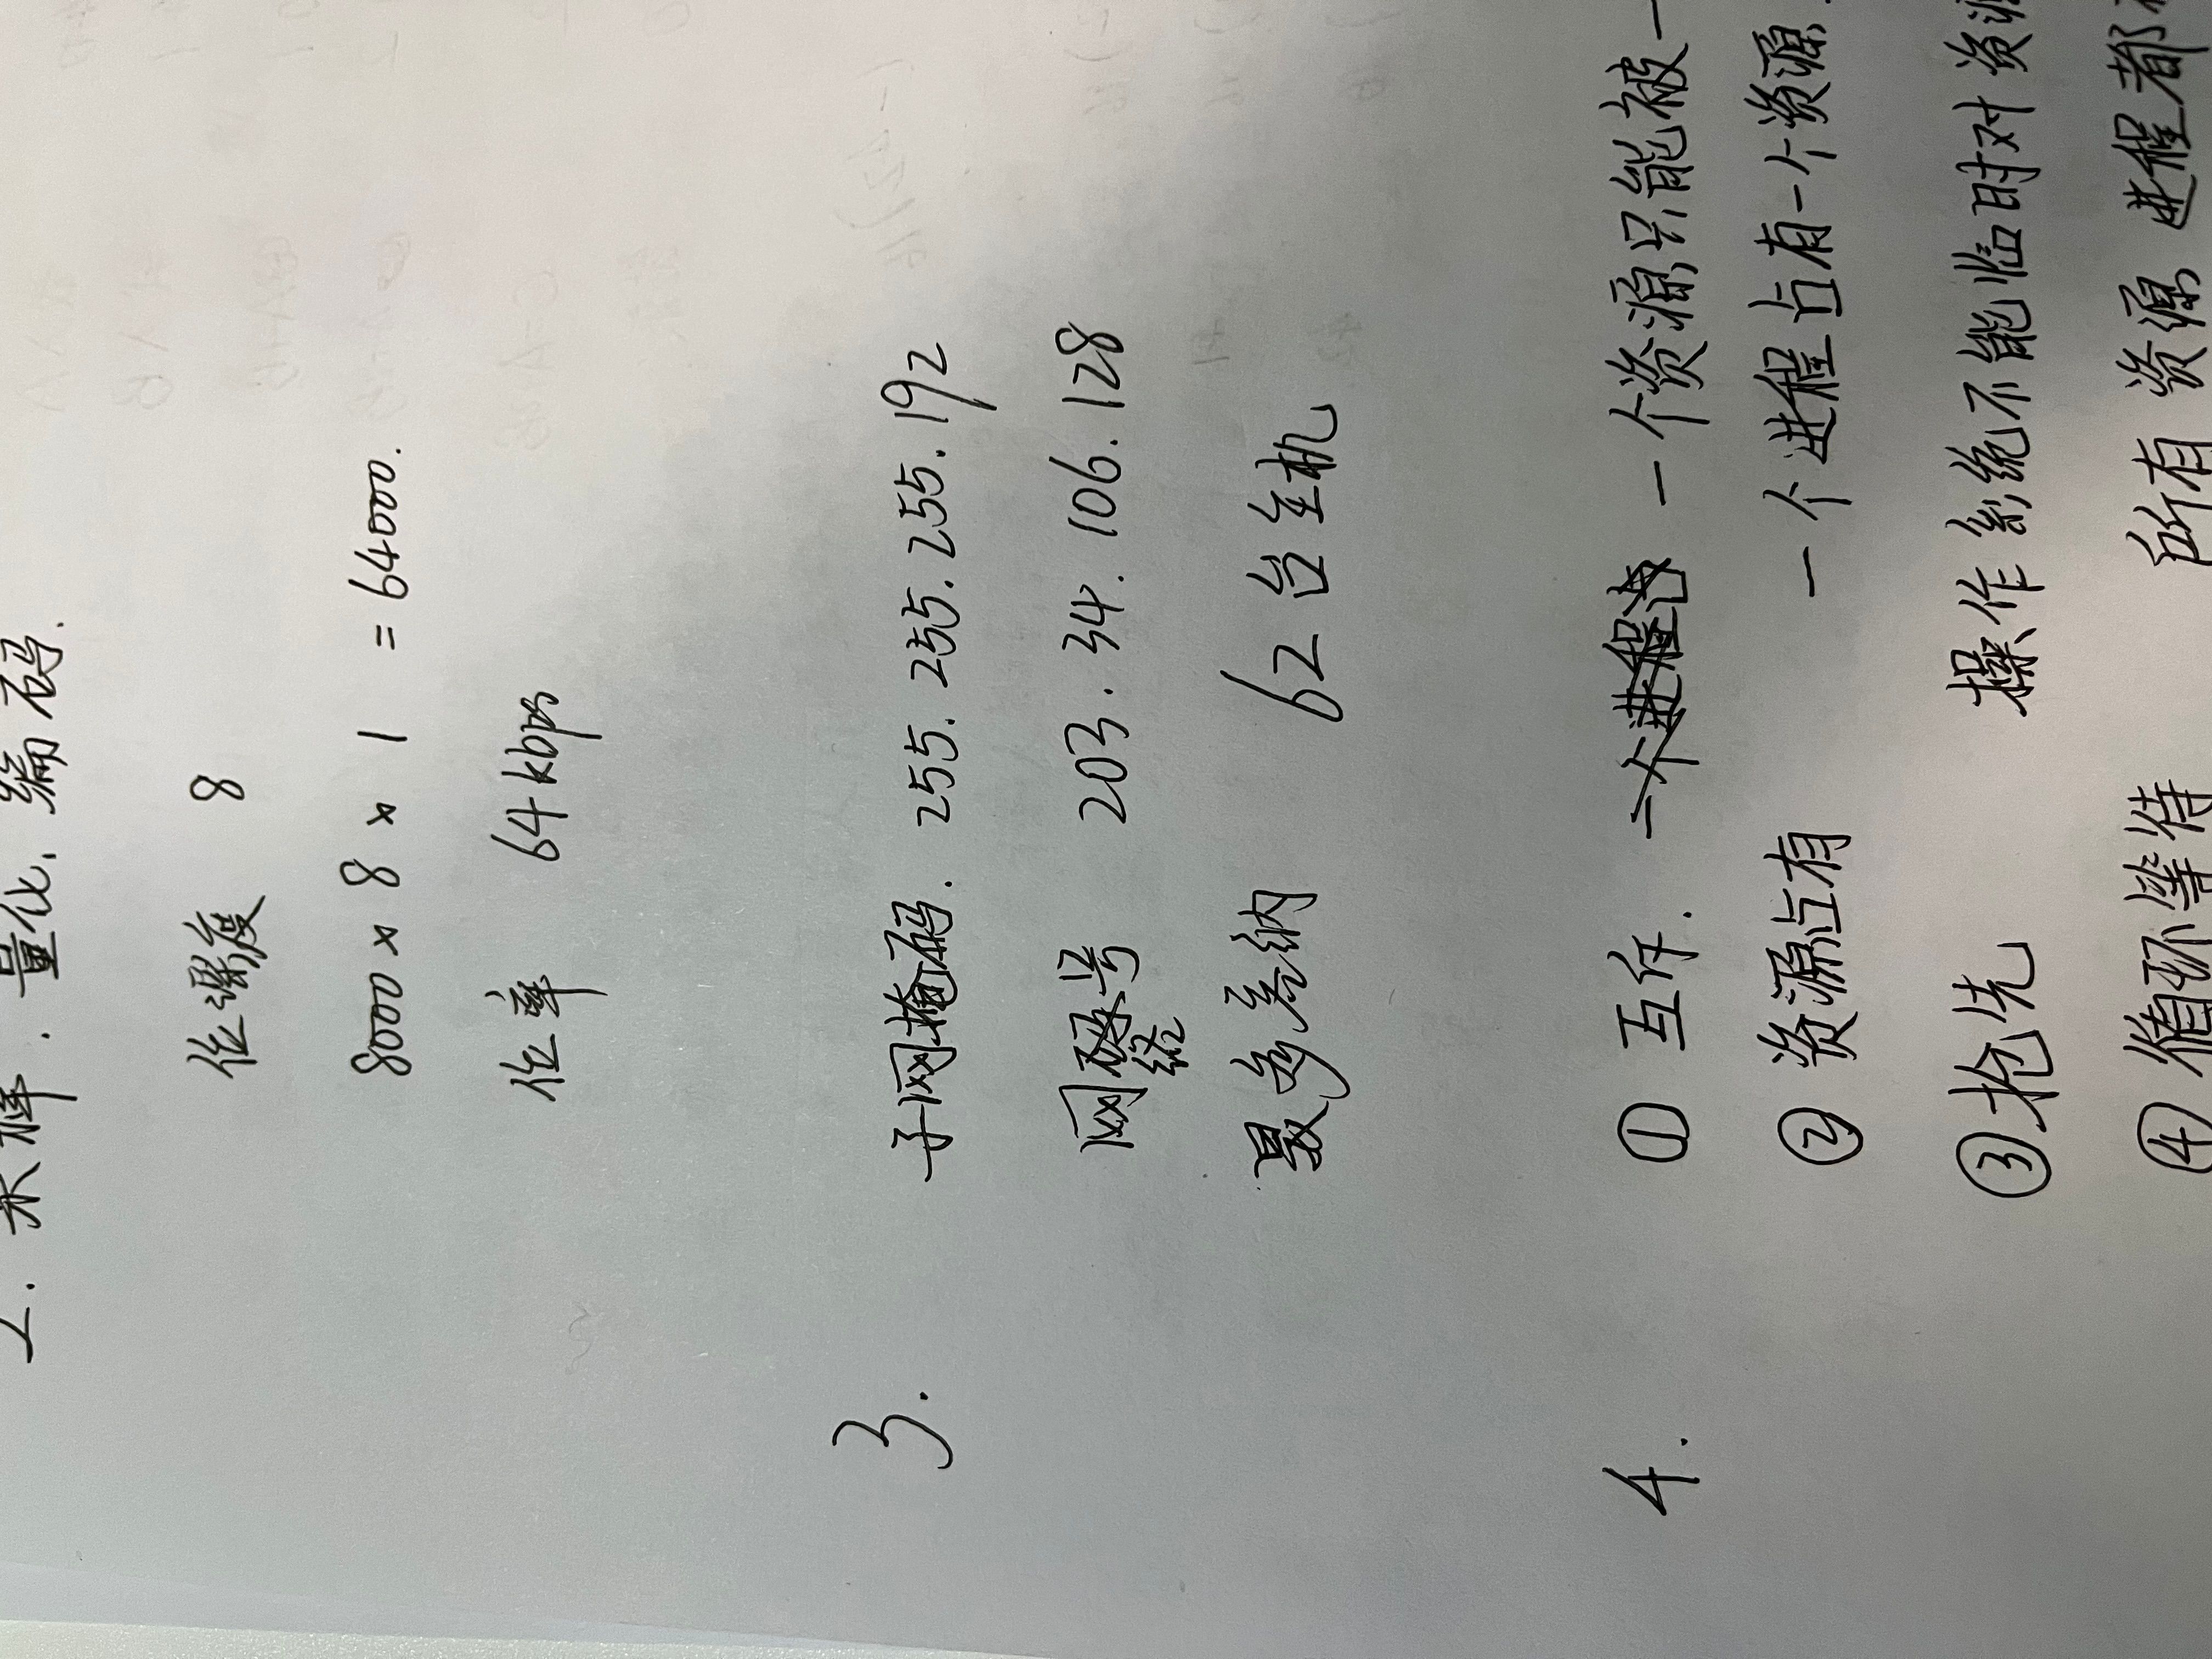 2. 采样. 量化. 编码.
位深度 8
8000 × 8 × 1 = 64000.
位率 64kbps
3. 子网掩码. 255.255.255.192
网络号 203.34.106.128
最多容纳 62台主机
4. ① 互斥. 一个进程占 一个资源只能被一
② 资源占有 一个进程占有一个资源
③ 抢先 操作系统不能临时对资源
④ 循环等待 所有资源进程都